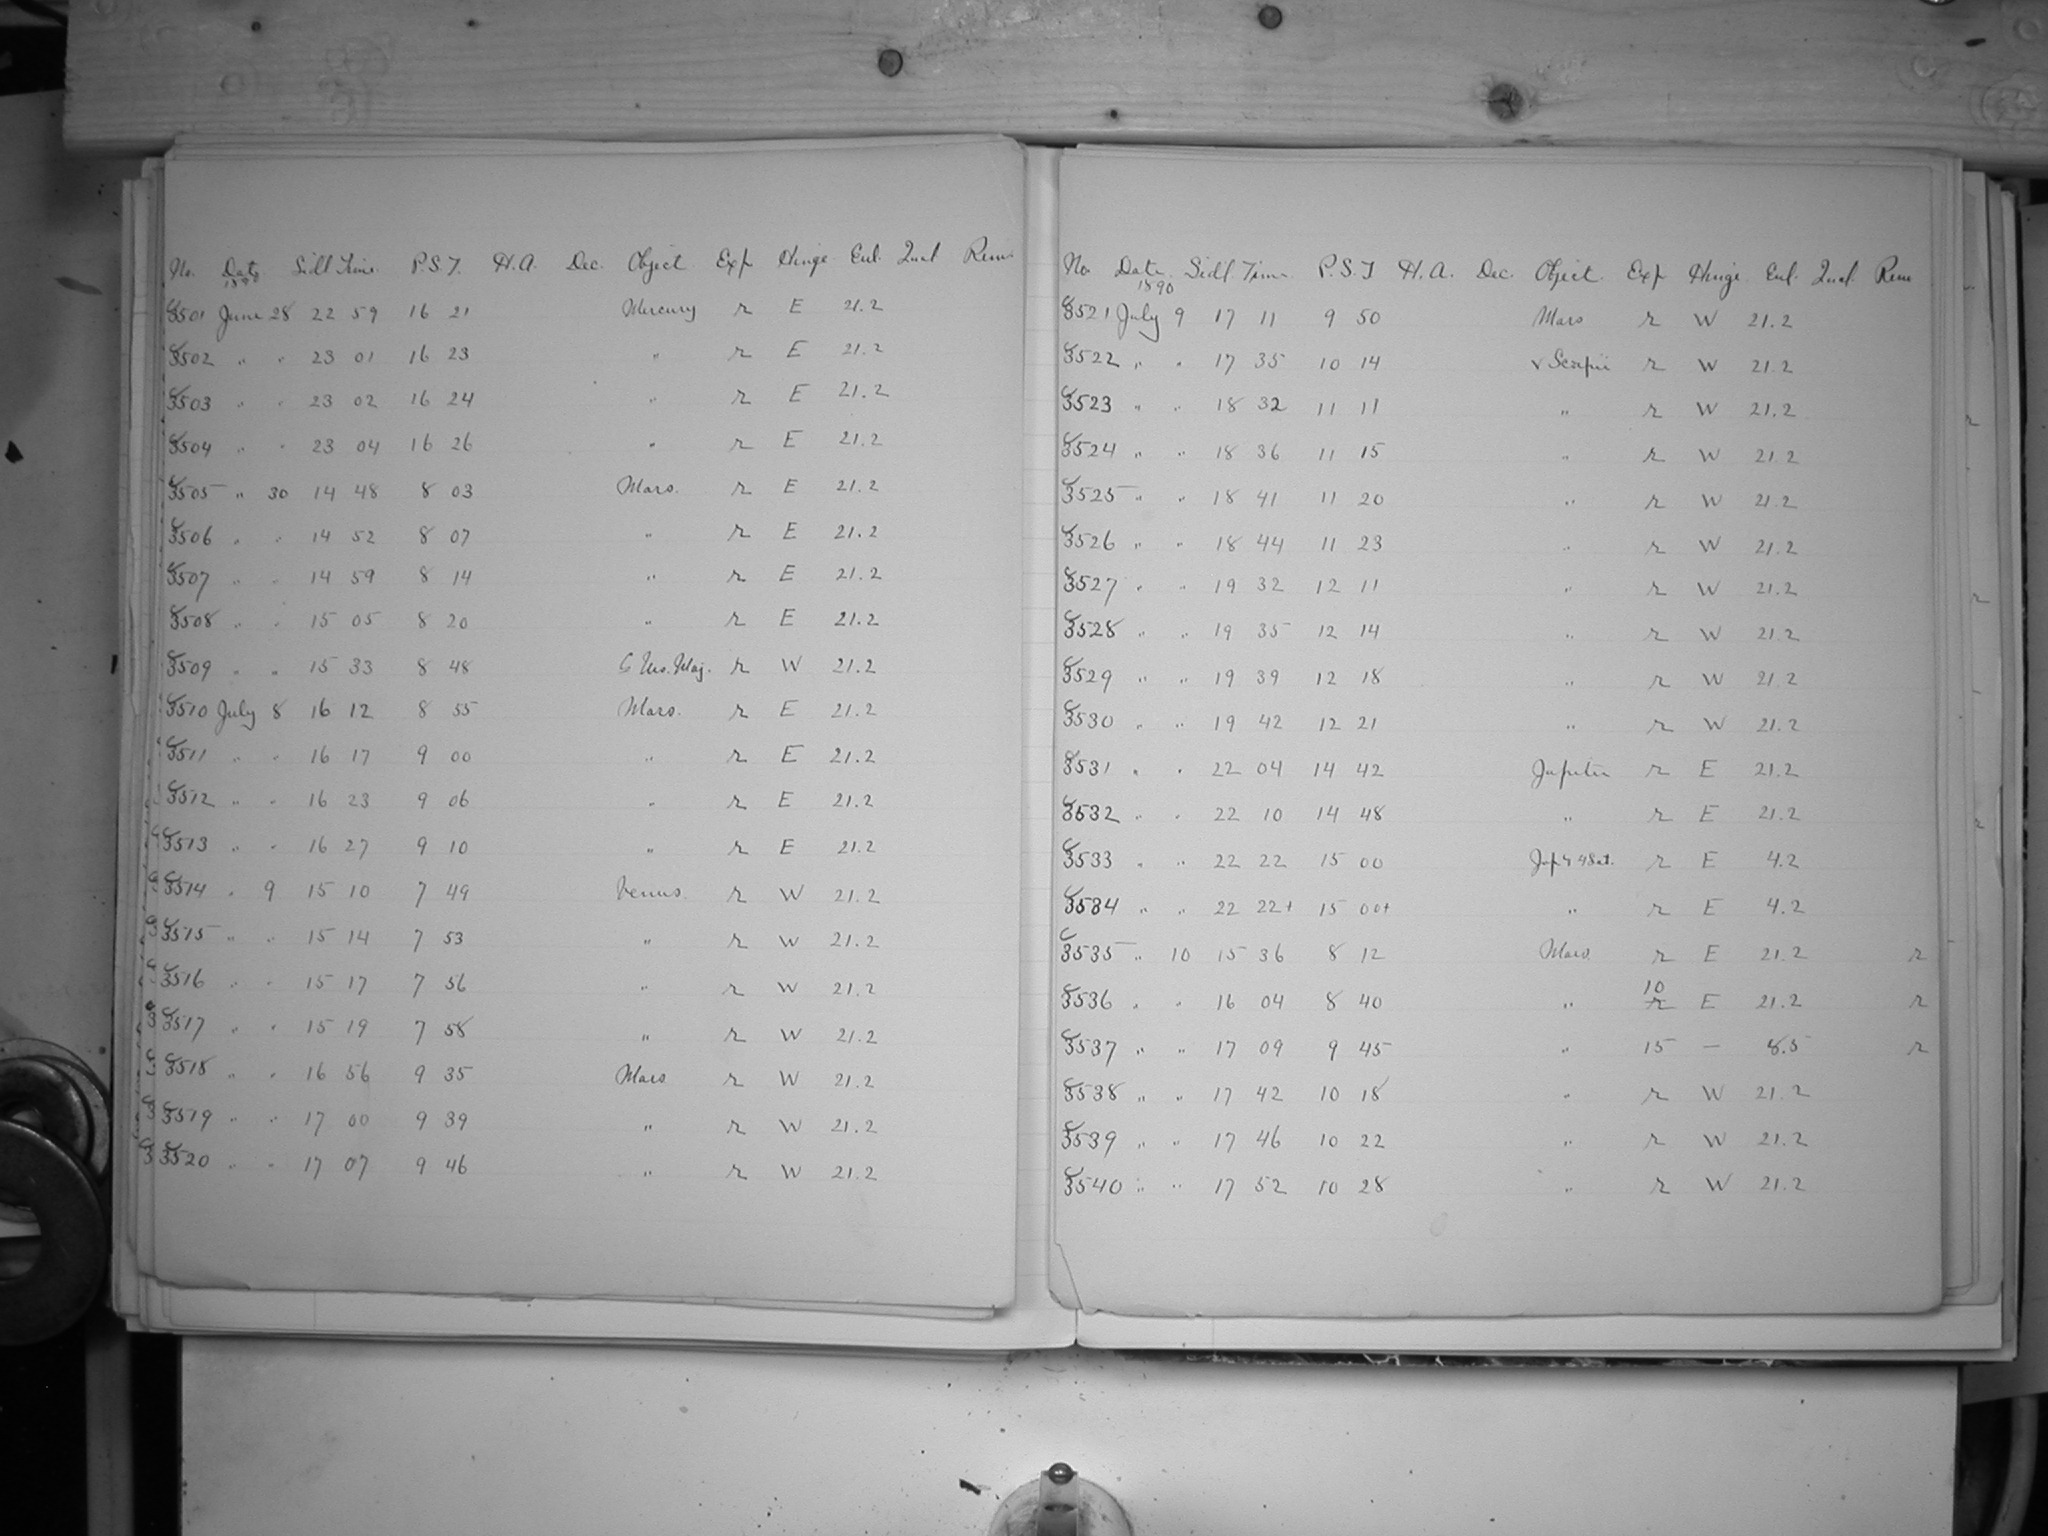 No. Date Sidl Time. P.S.T. H.A. Dec. Object Exp Hinge Enl. Qual Rem.
1890
8501 June 28 22 59 16 21 Mercury r E 21.2
8502 " " 23 01 16 23 " r E 21.2
8503 " " 23 02 16 24 " r E 21.2
8504 " " 23 04 16 26 " r E 21.2
8505 " 30 14 48 8 03 Mars. r E 21.2
8506 " " 14 52 8 07 " r E 21.2
8507 " " 14 59 8 14 " r E 21.2
8508 " " 15 05 8 20 " r E 21.2
8509 " " 15 33 8 48 Urs. Maj. r W 21.2
8510 July 8 16 12 8 55 Mars. r E 21.2
8511 " " 16 17 9 00 " r E 21.2
8512 " " 16 23 9 06 " r E 21.2
8513 " " 16 27 9 10 " r E 21.2
8514 " 9 15 10 7 49 Venus. r W 21.2
8515 " " 15 14 7 53 " r W 21.2
8516 " " 15 17 7 56 " r W 21.2
8517 " " 15 19 7 58 " r W 21.2
8518 " " 16 56 9 35 Mars r W 21.2
8519 " " 17 00 9 39 " r W 21.2
8520 " " 17 07 9 46 " r W 21.2
No. Date. Sidl. Time. P.S.T H.A. Dec. Object. Exp Hinge. Enl. Qual. Rem
1890
8521 July 9 17 11 9 50 Mars r W 21.2
8522 " " 17 35 10 14 ν Scorpii r W 21.2
8523 " " 18 32 11 11 " r W 21.2
8524 " " 18 36 11 15 " r W 21.2
8525 " " 18 41 11 20 " r W 21.2
8526 " " 18 44 11 23 " r W 21.2
8527 " " 19 32 12 11 " r W 21.2
8528 " " 19 35 12 14 " r W 21.2
8529 " " 19 39 12 18 " r W 21.2
8530 " " 19 42 12 21 " r W 21.2
8531 " " 22 04 14 42 Jupiter r E 21.2
8532 " " 22 10 14 48 " r E 21.2
8533 " " 22 22 15 00 Jup & 4 Sat. r E 4.2
8534 " " 22 22+ 15 00+ " r E 4.2
8535 " 10 15 36 8 12 Mars. r E 21.2 r
10
8536 " " 16 04 8 40 " r E 21.2 r
8537 " " 17 09 9 45 " 15 — 8.5 r
8538 " " 17 42 10 18 " r W 21.2
8539 " " 17 46 10 22 " r W 21.2
8540 " " 17 52 10 28 " r W 21.2